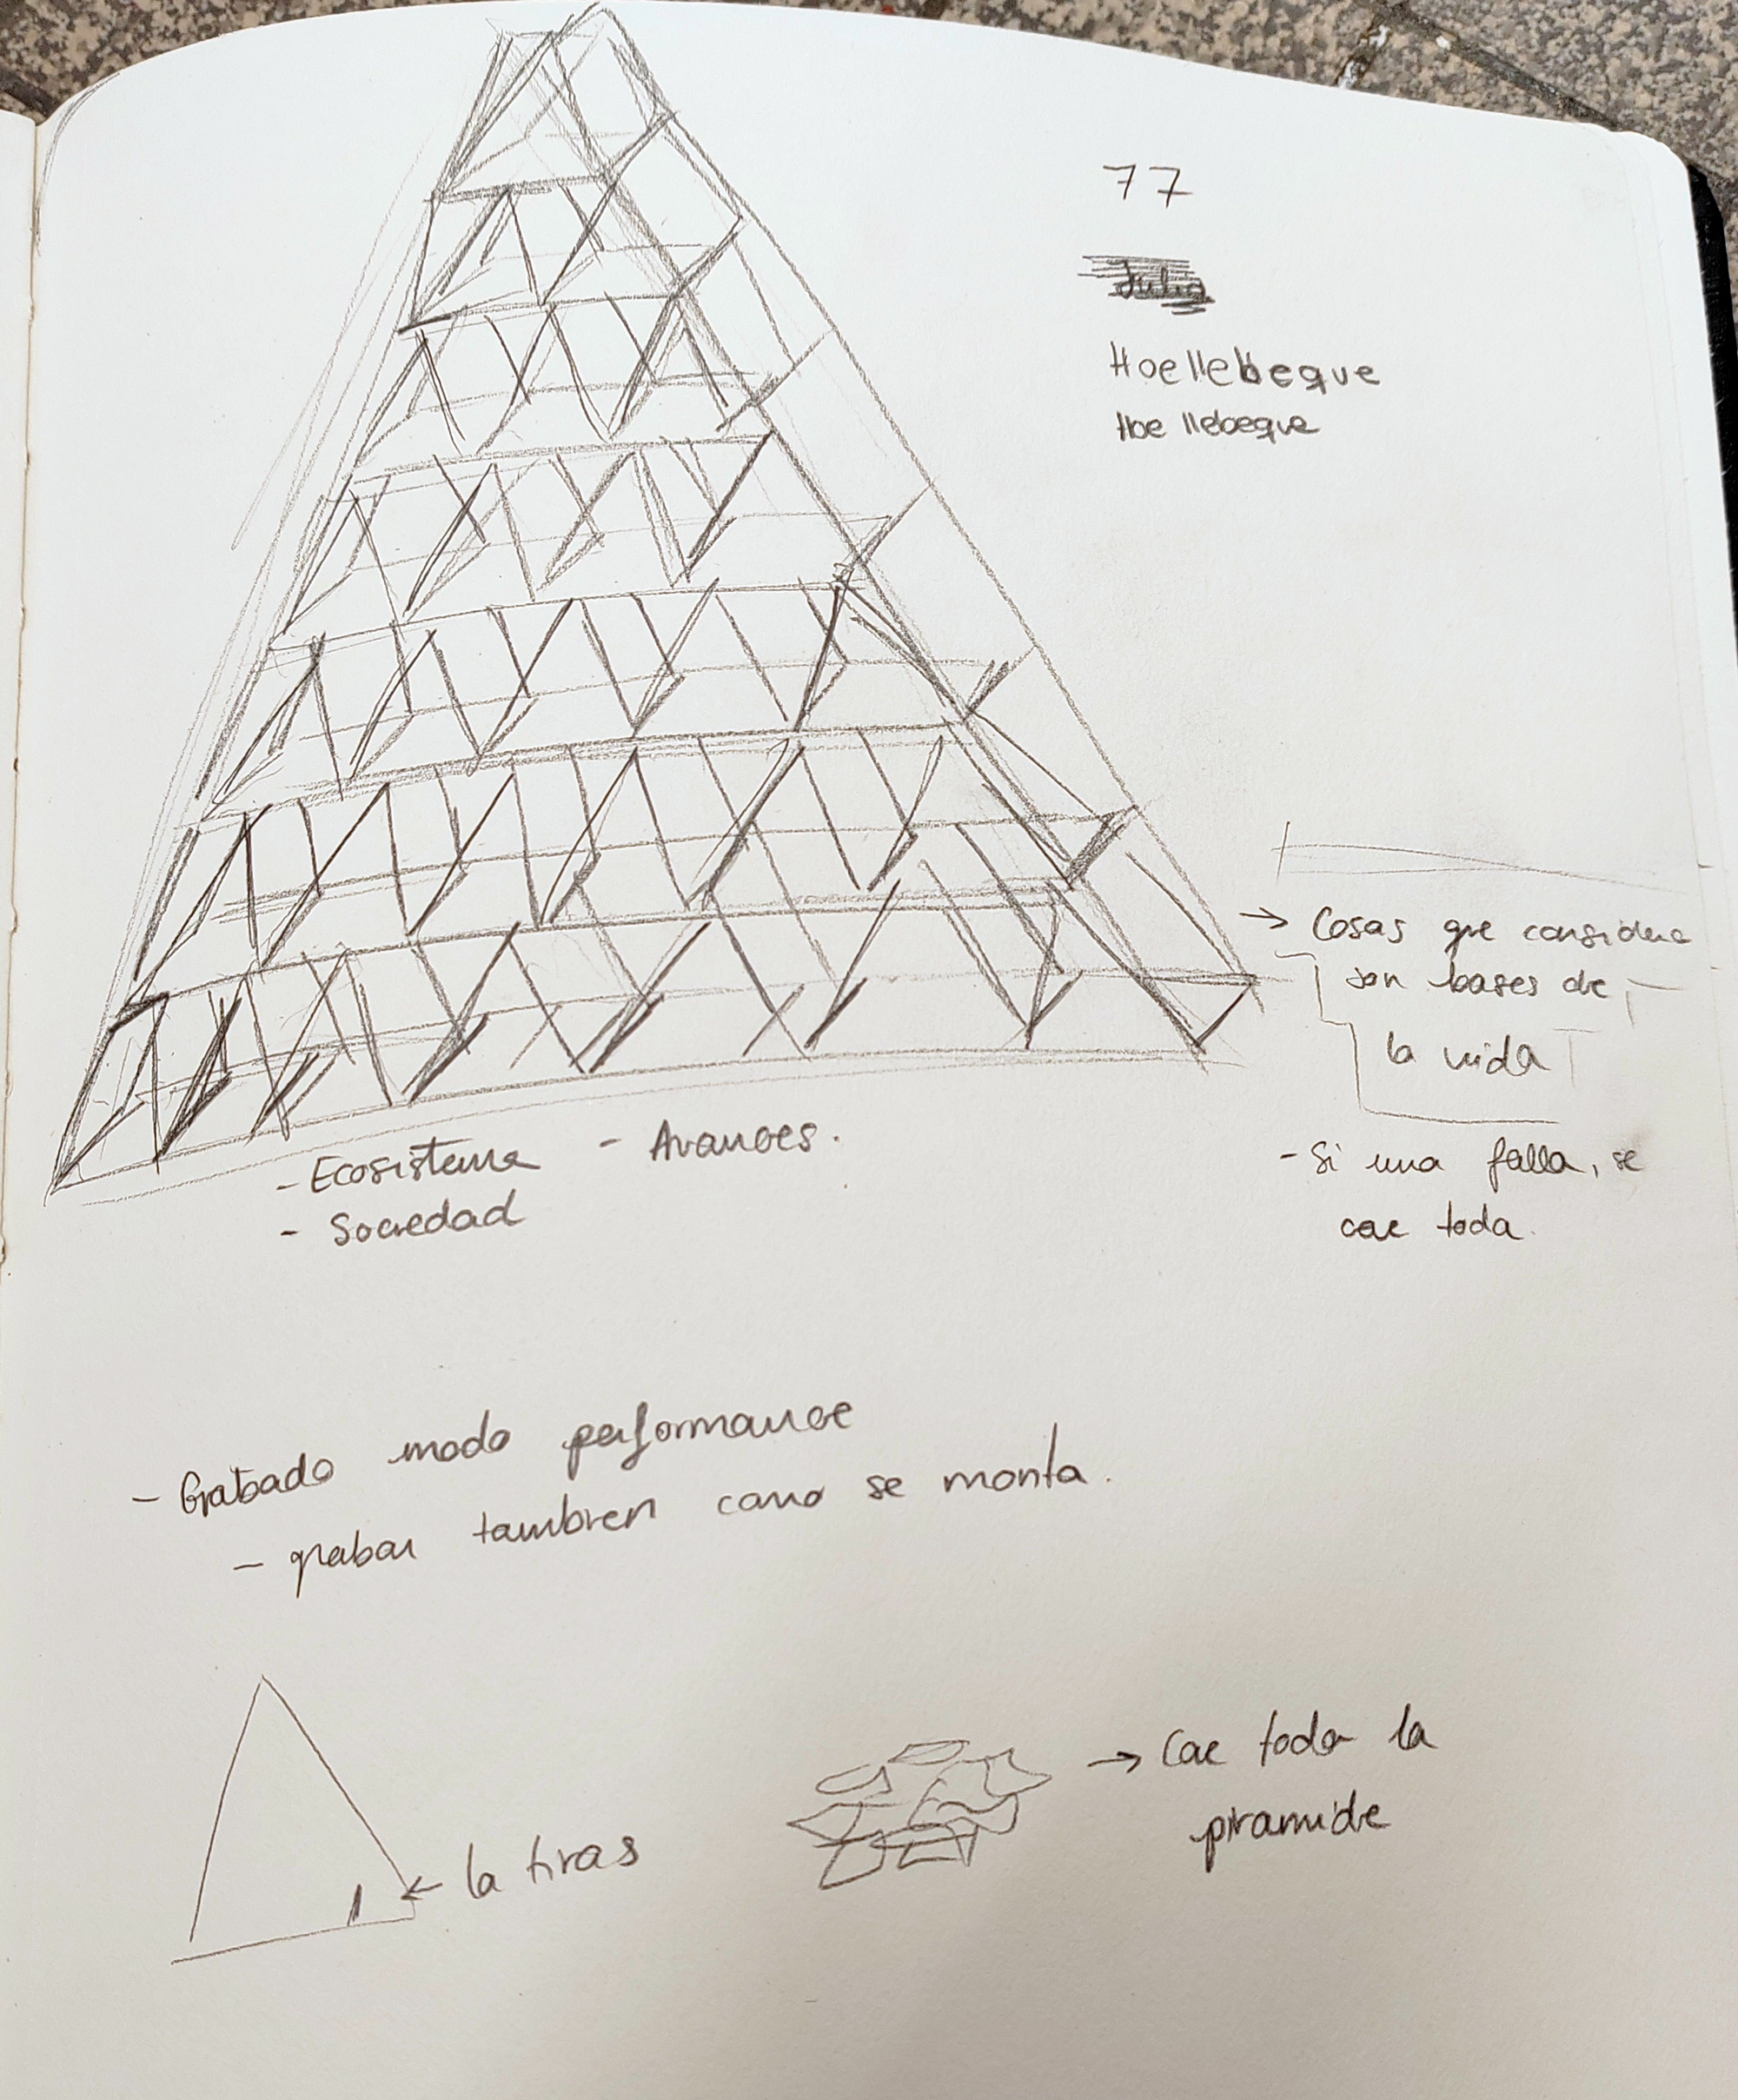 77
Julia
Hoellebeque
Hoellebeque
→ Cosas que considera
son bases de
la vida
- Si una falla, se
cae toda.
- Ecosistema - Avances.
- Sociedad
- Grabado modo performance
- grabar tambien como se monta.
← la tiras
→ Cae toda la
piramide